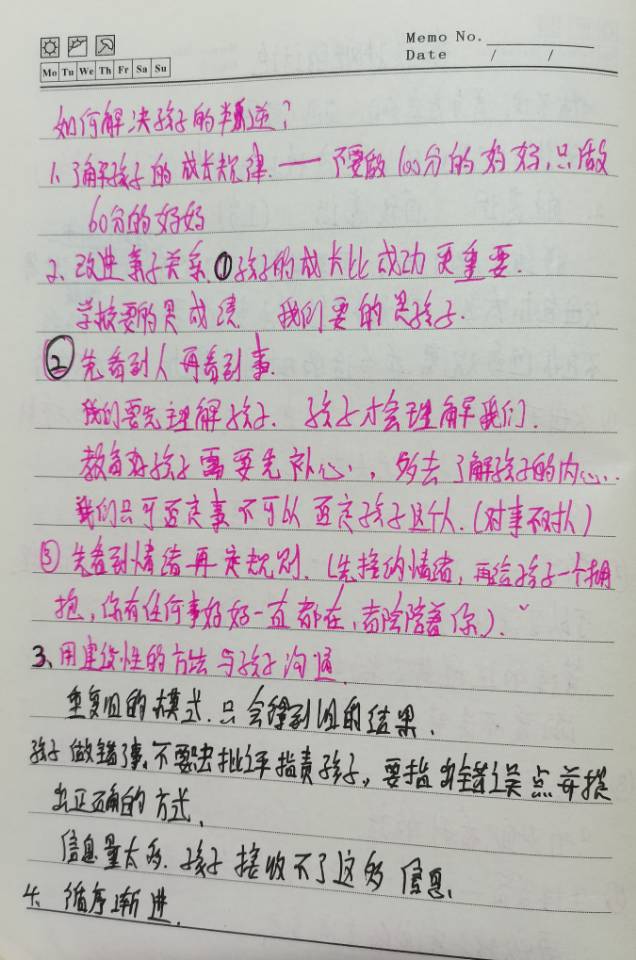 Memo No.
Date / /
Mo Tu We Th Fr Sa Su
如何解决孩子的叛逆？
1. 了解孩子的成长规律.——不要做100分的妈妈,只做
60分的妈妈
2. 改进亲子关系.①孩子的成长比成功更重要.
学校要的是成绩 我们要的是孩子.
②先看到人再看到事.
我们要先理解孩子. 孩子才会理解我们.
教育好孩子需要先补心., 多去了解孩子的内心..
我们只可否定事不可以否定孩子这个人.(对事不对人)
③先看到情绪再定规则.(先接纳情绪, 再给孩子一个拥
抱,你有任何事妈妈一直都在,都会陪着你).
3、用建设性的方法与孩子沟通.
重复旧的模式.只会得到旧的结果.
孩子做错事,不要出批评指责孩子,要指出错误点并提
出正确的方式.
信息量太多.孩子接收不了这多信息.
4. 循序渐进.